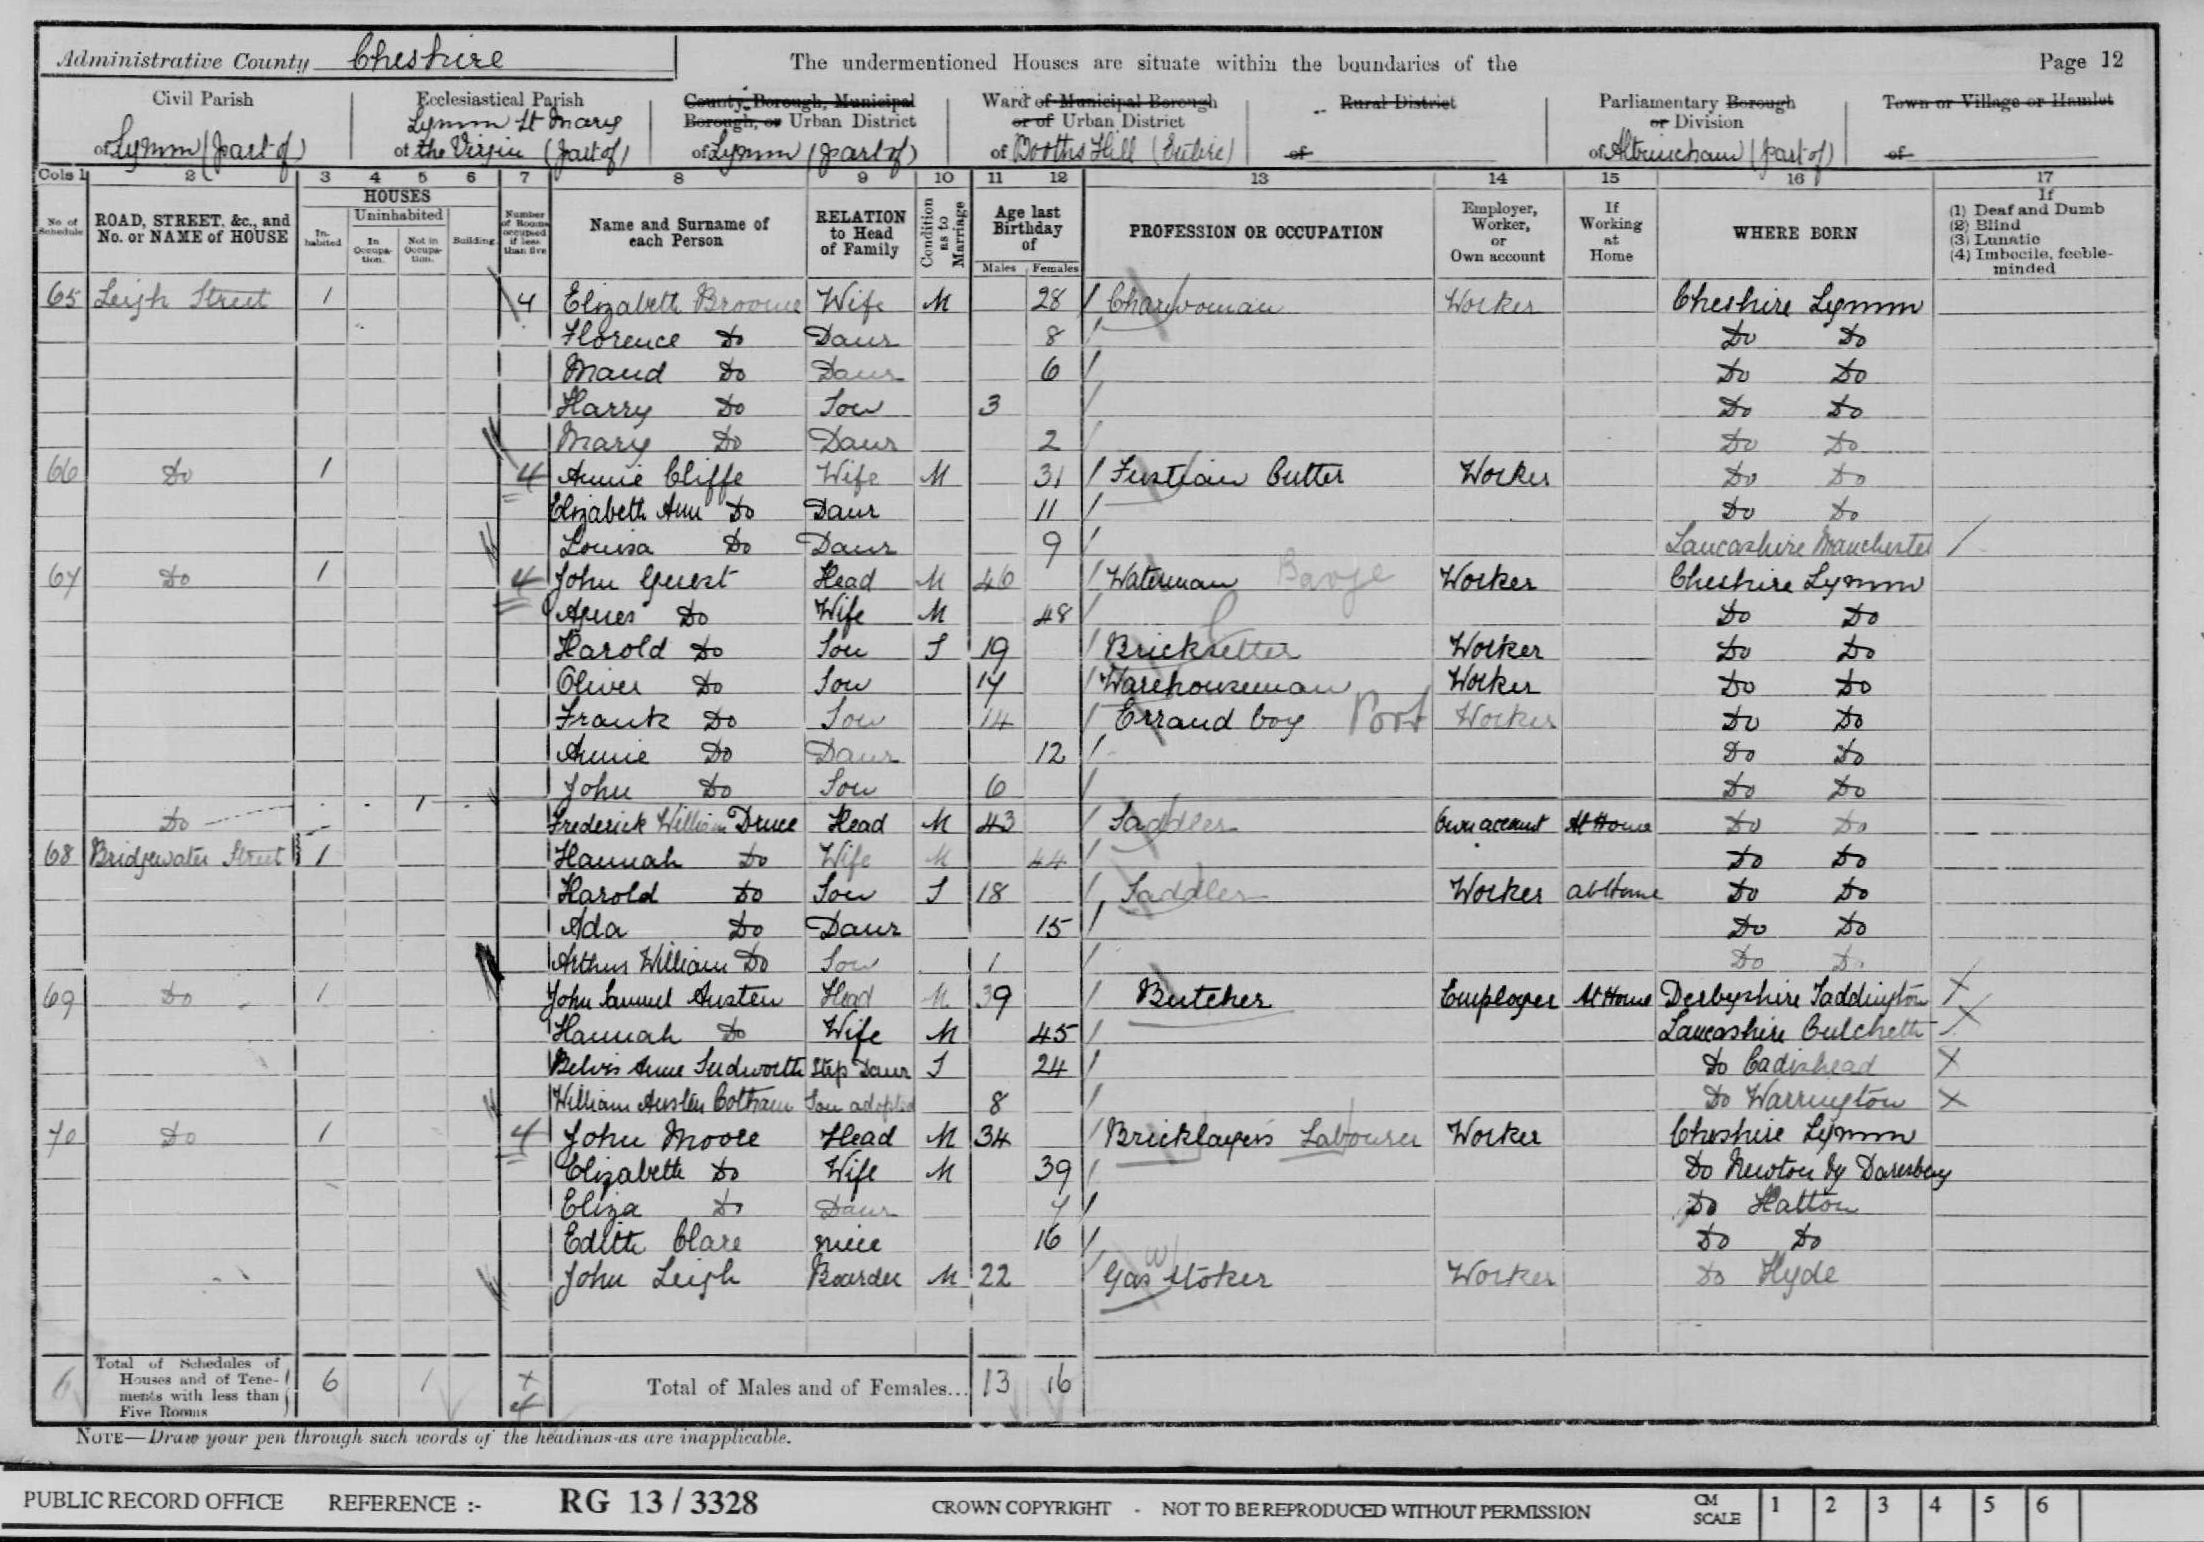 Administrative County Cheshire The undermentioned Houses are situate within the boundaries of the Page 12
Civil Parish of Lymm (part of)
Ecclesiastical Parish of Lymm St Mary the Virgin (part of)
County Borough, Municipal Borough, or Urban District of Lymm (part of)
Ward of Municipal Borough or of Urban District of Booths Hill (Entire)
Rural District of
Parliamentary Borough or Division of Altrincham (part of)
Town or Village or Hamlet of
Cols 1 2 3 4 5 6 7 8 9 10 11 12 13 14 15 16 17
No. of Schedule
ROAD, STREET, &c., and No. or NAME of HOUSE
HOUSES
Inhabited
Uninhabited
In Occupation.
Not in Occupation.
Building.
Number of Rooms occupied if less than five
Name and Surname of each Person
RELATION to Head of Family
Condition as to Marriage
Age last Birthday of
Males Females
PROFESSION OR OCCUPATION
Employer, Worker, or Own account
If Working at Home
WHERE BORN
If (1) Deaf and Dumb (2) Blind (3) Lunatic (4) Imbecile, feeble-minded
65 Leigh Street 1 4 Elizabeth Broome Wife M 28 Charwoman Worker Cheshire Lymm
Florence Do Daur 8 Do Do
Maud Do Daur 6 Do Do
Harry Do Son 3 Do Do
Mary Do Daur 2 Do Do
66 Do 1 4 Annie Cliffe Wife M 31 Fustian Cutter Worker Do Do
Elizabeth Ann Do Daur 11 Do Do
Louisa Do Daur 9 Lancashire Manchester
67 Do 1 4 John Guest Head M 46 Waterman Barge Worker Cheshire Lymm
Agnes Do Wife M 48 Do Do
Harold Do Son S 19 Bricksetter Worker Do Do
Oliver Do Son 17 Warehouseman Worker Do Do
Frank Do Son 14 Errand boy Port Worker Do Do
Annie Do Daur 12 Do Do
John Do Son 6 Do Do
Do 1 Frederick William Druce Head M 43 Saddler Own account At Home Do Do
68 Bridgewater Street 1 Hannah Do Wife M 44 Do Do
Harold Do Son S 18 Saddler Worker at Home Do Do
Ada Do Daur 15 Do Do
Arthur William Do Son 1 Do Do
69 Do 1 John Samuel Austen Head M 39 Butcher Employer At Home Derbyshire Taddington
Hannah Do Wife M 45 Lancashire Culcheth
Anne Sudworth Step Daur S 24 Do Cadishead
William Austen Son adopted 8 Do Warrington
70 Do 1 4 John Moore Head M 34 Bricklayers Labourer Worker Cheshire Lymm
Elizabeth Do Wife M 39 Do Newton by Daresbury
Eliza Do Daur 7 Do Hatton
Edith Clare niece 16 Do Do
John Leigh Boarder M 22 Gas Stoker Worker Do Hyde
6 Total of Schedules of Houses and of Tenements with less than Five Rooms 6 1 4 Total of Males and of Females... 13 16
NOTE—Draw your pen through such words of the headings as are inapplicable.
PUBLIC RECORD OFFICE REFERENCE :- RG 13 / 3328 CROWN COPYRIGHT - NOT TO BE REPRODUCED WITHOUT PERMISSION CM SCALE 1 2 3 4 5 6